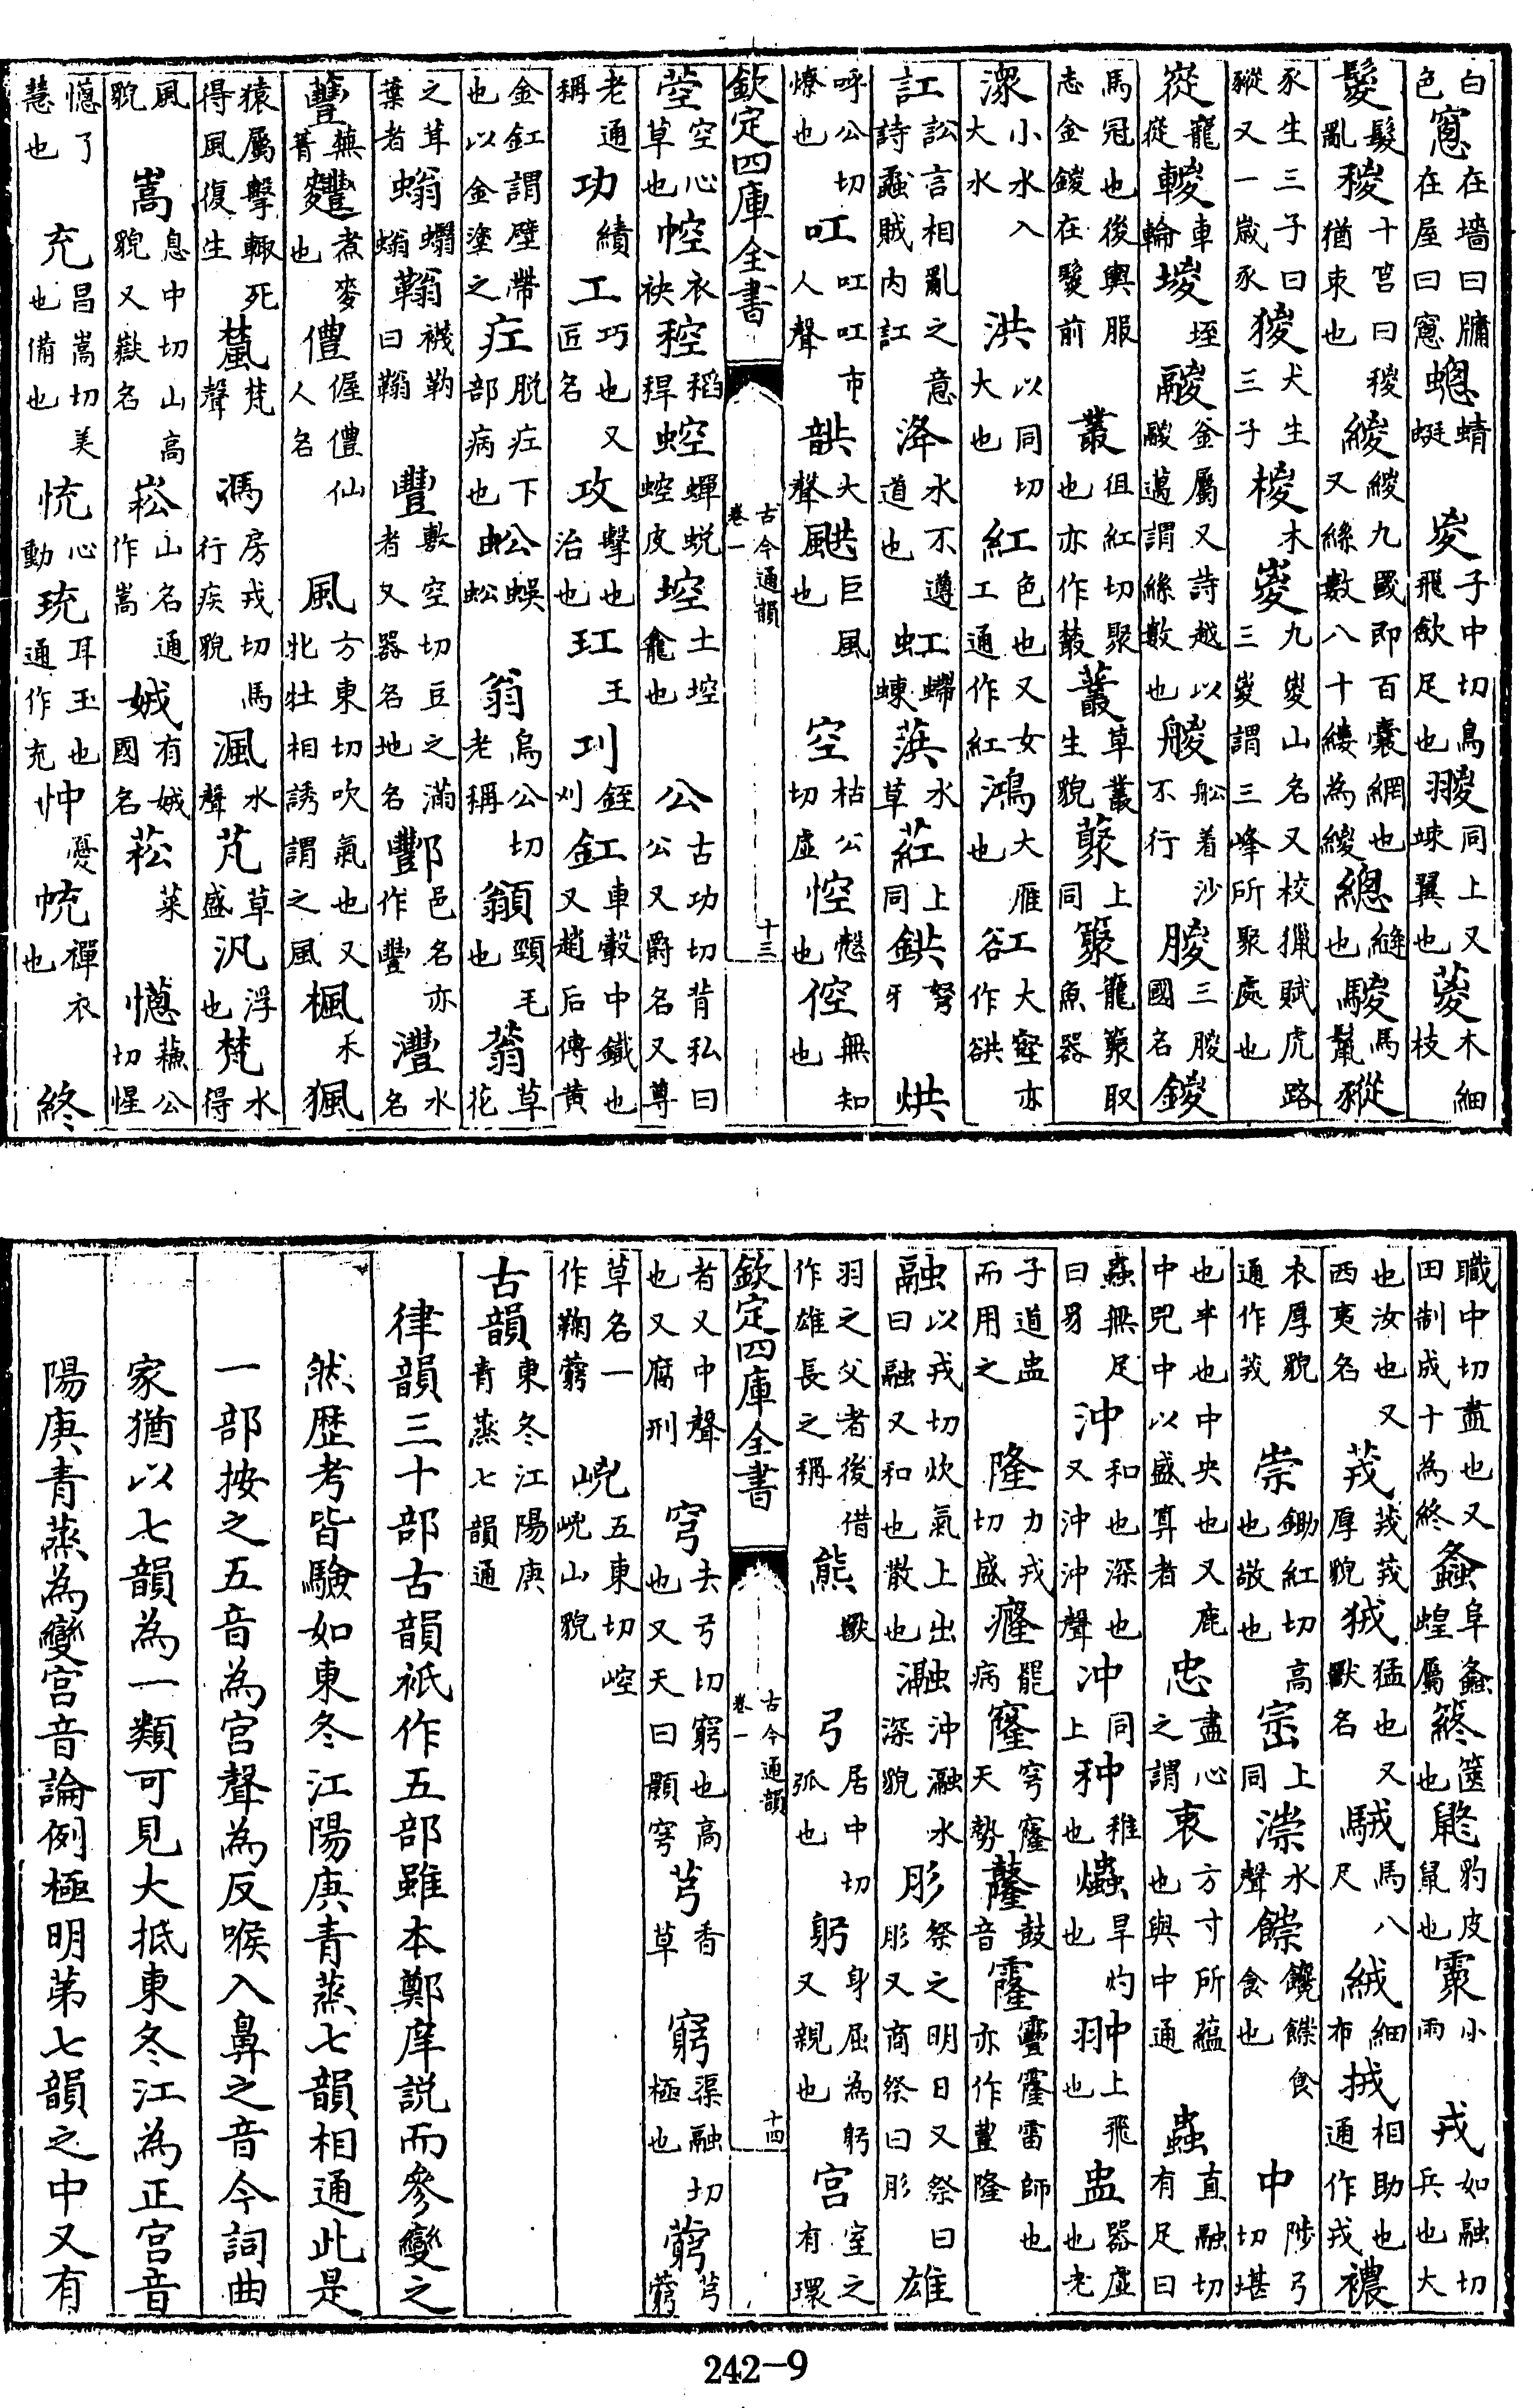 白色窻在墻曰牖在屋曰窻蟌蜻蜓㚇子中切鳥飛斂足也翪同上又竦翼也葼木細枝
鬉髮亂稯十筥曰稯猶束也緵緵九罭即百囊網也又絲數八十縷為緵緫縫也騣馬鬛豵
豕生三子曰豵又一歲豕猣犬生三子椶木嵏九嵏山名又校獵賦虎路三嵏謂三峰所聚處也
嵷巃嵷䡯車輪堫垤鬷釜屬又詩越以鬷邁謂絲數也艐船着沙不行朡三朡國名鍐
馬冠也後輿服志金鍐在髦前叢徂紅切聚也亦作藂䕺草叢生貌藂上同䉘籠䉘取魚器
潀小水入大水洪以同切大也紅色也又女工通作紅鴻大雁也大壑亦作谼
訌訟言相亂之意詩蟊賊內訌洚水不遵道也虹螮蝀葓水草葒上同鉷弩牙烘
呼公切燎也叿叿叿市人聲䪦大聲䫹巨風也空枯公切虛悾慤也倥無知也
欽定四庫全書 古今通韻 卷一 十三
空心草也衣袂䅝稻稈蟬蛻皮埪土埪龕也公古功切背私曰公又爵名又尊
老通稱功績工巧也又匠名攻擊也治也玒玉銍刈釭車轂中鐵也又趙后傳黃
金釭謂壁帶也以金塗之疘脫疘下部病也蚣蜈蚣翁烏公切老稱頸毛也蓊草花
之茸葉者螉蠮螉䩺韈靿曰䩺豐敷空切豆之滿者又器名地名酆邑名亦作豐灃水名
蘴蕪菁麷煮麥也僼偓僼仙人名風方東切吹氣也又北牡相誘謂之風楓木猦
猿屬擊輒死得風復生檒梵聲馮房戎切馬行疾貌渢水聲芃草盛汎浮也梵水得終
風貌嵩息中切山高貌又嶽名崧山名通作嵩娀有娀國名菘菜憽蘓公切惺
憽了慧也充昌嵩切美也備也㤝心動珫耳玉也通作充忡憂禪衣也
職中切盡也又田制成十為終螽阜螽蝗屬簦也豹皮鼠也霥小雨戎如融切兵也大
也汝也又西夷名茙茙茙厚貌狨猛也又獸名駥馬八尺絨細布㧡相助也通作戎襛
衣厚貌通作茙崇鋤紅切高也敬也崈上同漴水聲饞食也中陟弓切堪
也半也中央也又鹿中兕中以盛算者忠盡心之謂衷方寸所蘊也與中通蟲直融切有足曰
蟲無足曰豸沖和也深也又沖沖聲冲上同种稚也爞旱灼也翀上飛也盅器虛也老
子道盅而用之隆力戎切盛癃罷病窿穹窿天勢鼓音霳靊霳雷師也亦作豐隆
融以戎切炊氣上出曰融又和也散也瀜沖瀜水深貌肜祭之明日又祭曰肜又商祭曰肜雄
羽之父者後借作雄長之稱熊獸弓居中切弧也躬身屈為躬又親也宮室之有環
欽定四庫全書 古今通韻 卷一 十四
者又中聲也又腐刑穹去弓切窮也高也又天曰顥穹芎香草窮渠融切極也藭芎藭
草名一作鞠藭峣五東切崆峣山貌
古韻東冬江陽庚青蒸七韻通
律韻三十部古韻祇作五部雖本鄭庠說而參變之
然歷考皆驗如東冬江陽庚青蒸七韻相通此是
一部按之五音為宮聲為反喉入鼻之音今詞曲
家猶以七韻為一類可見大抵東冬江為正宮音
陽庚青蒸為變宮音論例極明第七韻之中又有
242-9